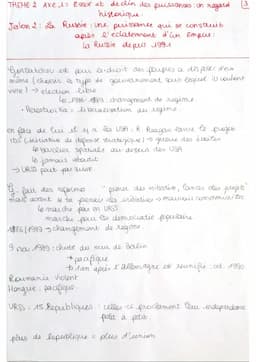 THEME 2 AXE 1: Essor et déclin des puissances: un regard 3
historique:
Jalon 2: La Russie: une puissance qui se construit
après l'éclatement d'un empire:
la Russie depuis 1991
Gorbatchev est pour le droit des peuples à disposer d'eux
même (choisir le type de gouvernement sous lequel ils veulent
vivre) → élection libre
↳ 1989: changement de régime
• Perestroïka = libéralisation du régime
en face de lui il y a les USA: R. Reagan lance le projet
IDS (initiative de défense stratégique) → guerre des étoiles
↳ satellites spatiales au dessus des USA
↳ jamais aboutit
→ URSS peut pas suivre
G. fait des réformes
mais
↳ marche pas en URSS
marche pour les démocraties populaires
1989 → changement de régime
9 nov 1989: chute du mur de Berlin
→ pacifique
→ 1 an après l'Allemagne est réunifiée: oct. 1990
Roumanie: violent
Hongrie: pacifique
URSS: 15 Républiques: celles-ci proclament leur indépendance
plus de république = plus d'union